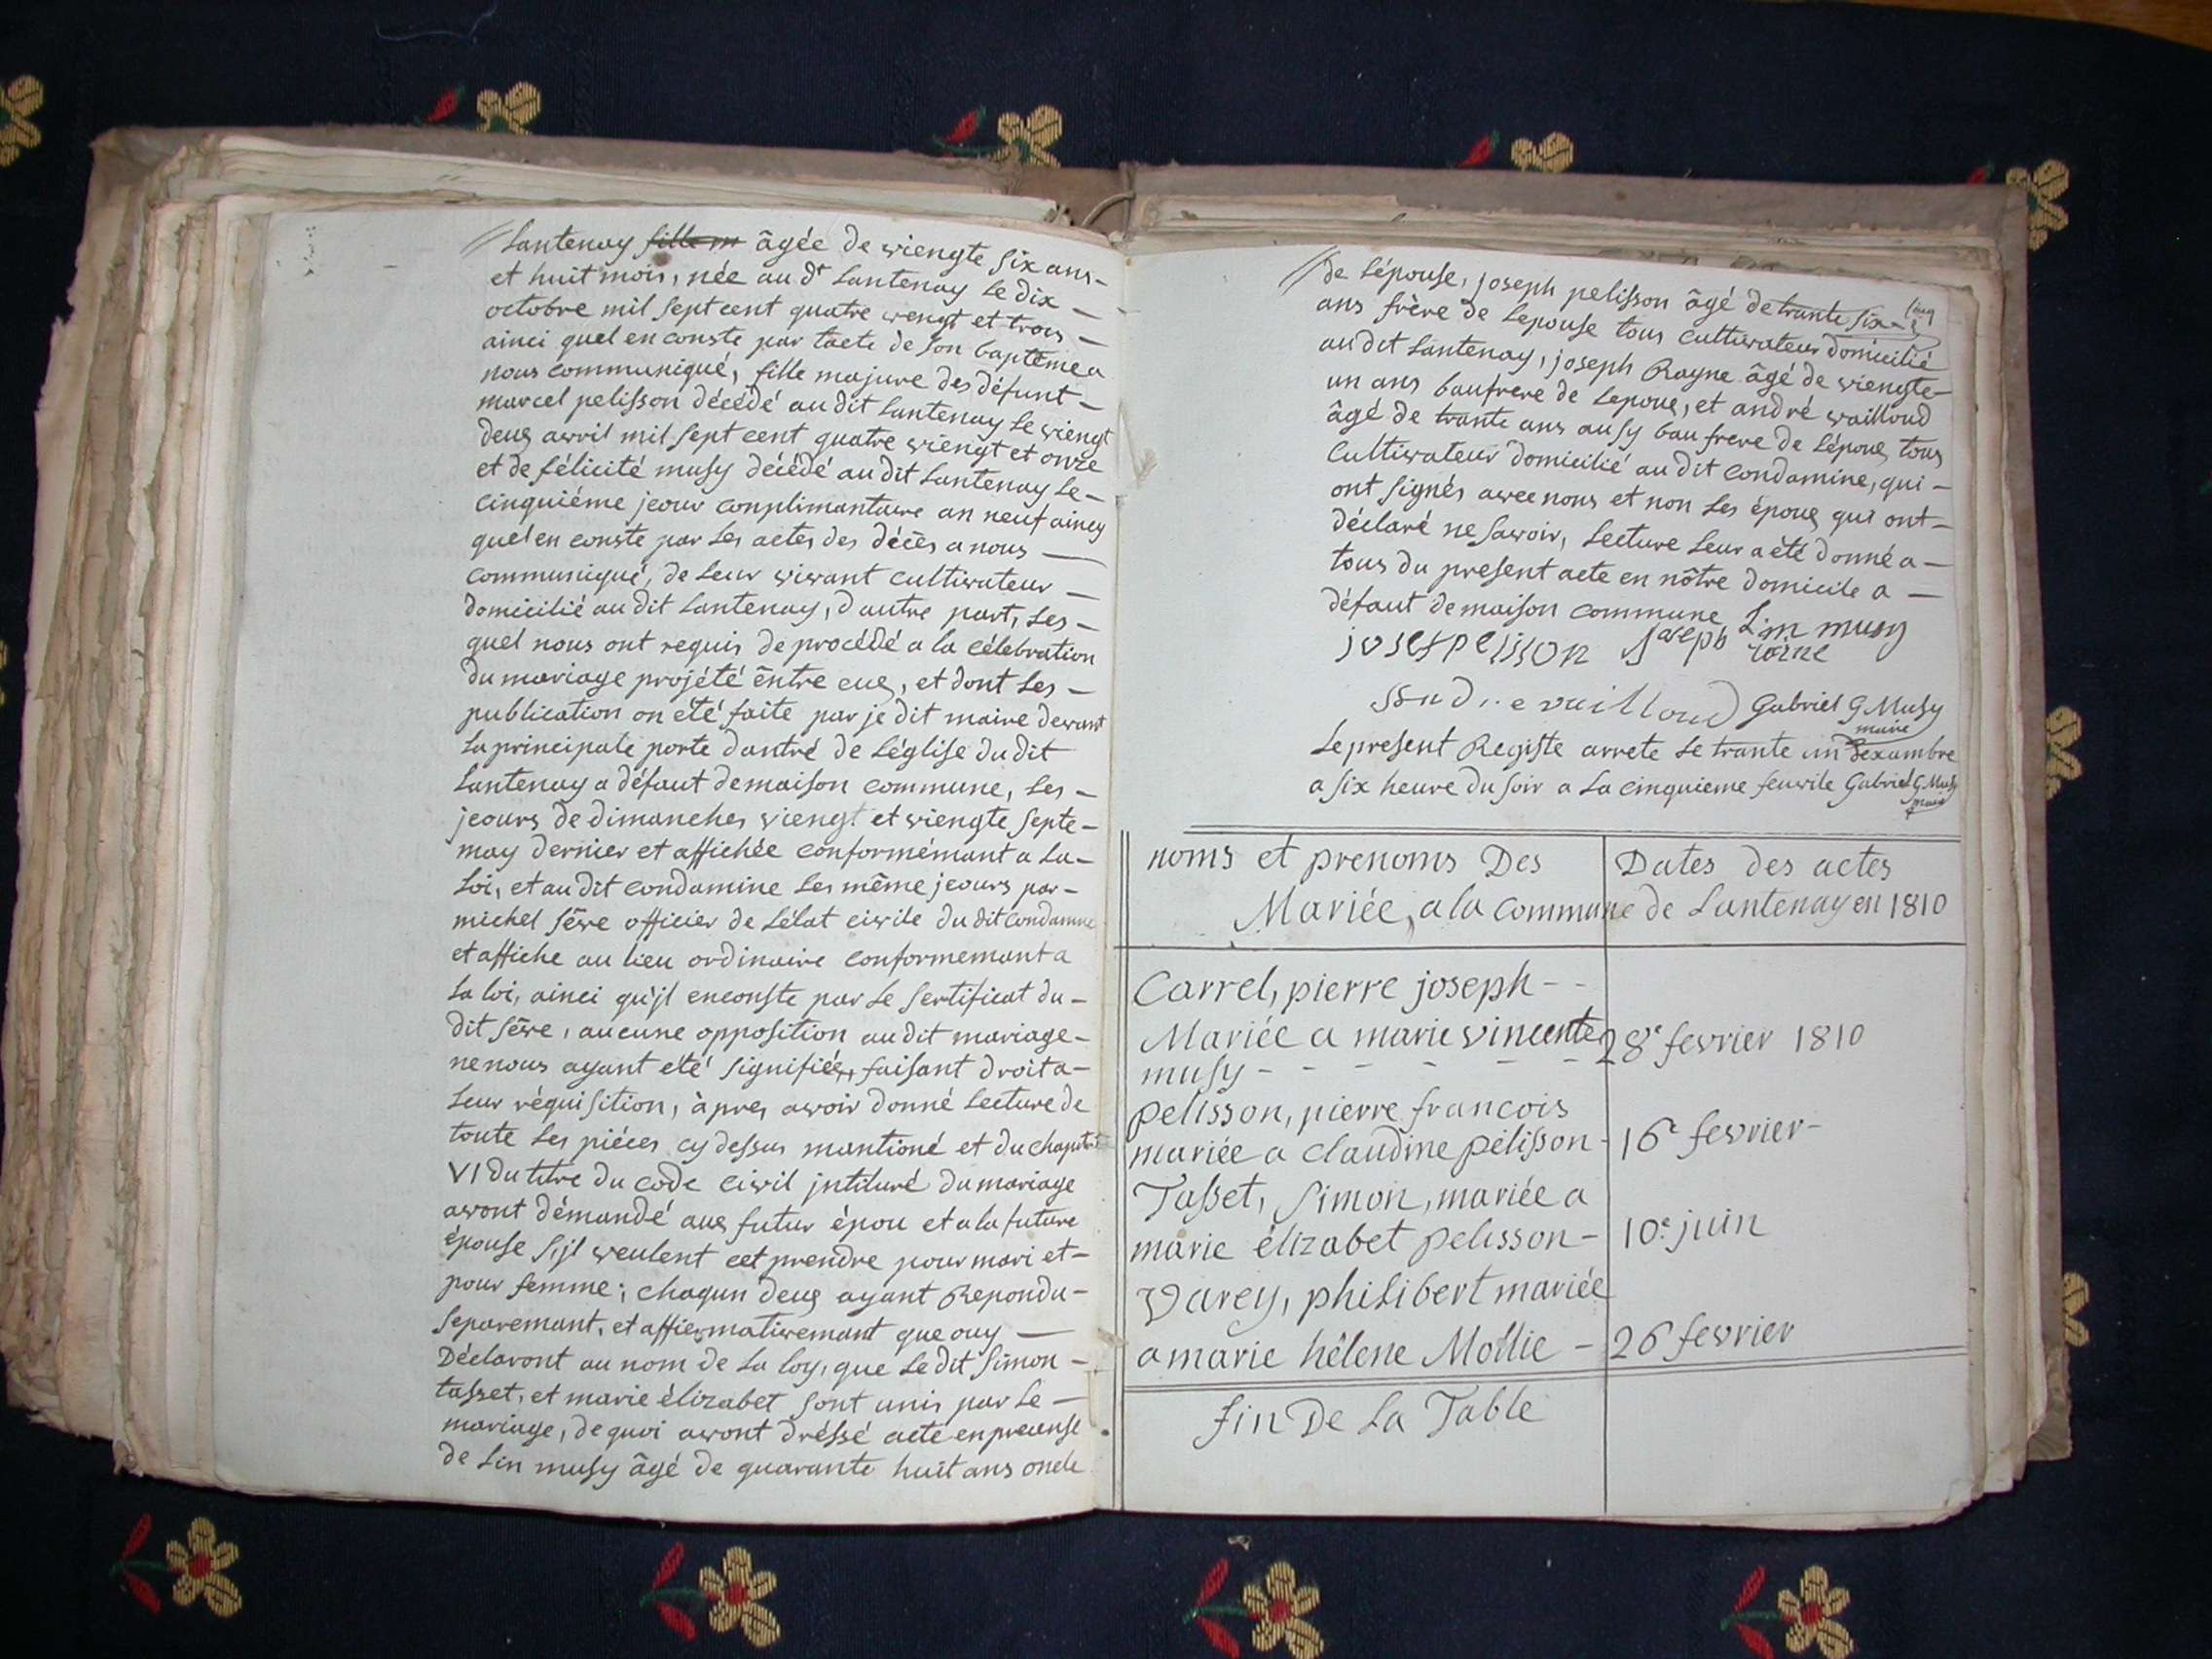 Lantenay fille m âgée de viengte six ans -
et huit mois, née au dt Lantenay le dix -
octobre mil sept cent quatre vengt et trois -
ainci quel en conste par lacte de son baptême a
nous communiqué, fille majure des défunt -
marcel pelisson décédé au dit Lantenay le viengt
deux avril mil sept cent quatre viengt et onze
et de félicité musy décédé au dit Lantenay le -
cinquiéme jeour conplimantaire an neuf aincy
quel en conste par les actes des décès a nous -
communiqué, de leur vivant cultivateur -
domicilié au dit Lantenay, d autre part, les -
quel nous ont requis de procédé a la célebration
du mariage projété êntre eux, et dont les -
publication on été faite par je dit maire devant
la principale porte dantré de léglise du dit
Lantenay a défaut de maison commune, les -
jeours de dimanches viengt et viengte septe -
may dernier et affichée conformémant a la -
loi, et au dit condamine les même jeours par -
michel sève officier de l'élat civile du dit Condamine
et affiche au lieu ordinaire conformemant a
la loi, ainci qu'jl enconste par le sertificat du -
dit sève, aucune opposition au dit mariage -
ne nous ayant été signifiée, faisant droit a -
leur réquisition, àpres avoir donné lecture de
toute les piéces cy dessus mantioné et du chapitre
VI du titre du code civil jntituré du mariage
avont démandé aux futur épou et a la future
épouse s,jl veulent cet prendre pour mari et -
pour femme ; chaqun deux ayant Repondu -
separemant, et affiermativemant que ouy -
Déclaront au nom de la loy, que le dit simon -
tasset, et marie élizabet sont unis par le -
mariage, de quoi avont dréssé acte en precense
de Lin musy âgé de quarante huit ans oncle
de lépouse, joseph pelisson âgé de trante six -
ans frère de lepouse tous cultivateur domicilié
au dit Lantenay, joseph Rayne âgé de viengte -
un ans baufrere de lepoux, et andré vailloud
âgé de trante ans ausy baufrere de lépoux tous
cultivateur domicilié au dit condamine, qui -
ont signés avec nous et non les époux qui ont -
déclaré ne savoir, lecture leur a été donné a -
tous du present acte en nôtre domicile a -
défaut de maison commune Lin musy
josef pelisson Joseph
Andre vuilloud Gabriel G Musy
maire
le present Registe arrete le trante un dexambre
a six heure du soir a la cinquieme feuvile Gabriel G. Musy
maire
noms et prenoms Des Dates des actes
Mariée, a la commune de Lantenay en 1810
Carrel, pierre joseph - -
Mariée a marie vincente 28e fevrier 1810
musy - - - - -
pelisson, pierre francois
mariée a claudine pélisson - 16e fevrier -
Tasset, Simon, mariée a
marie élizabet pelisson - 10e juin
Varey, philibert mariée
a marie hêlene Mollie - 26 fevrier
fin De La Table